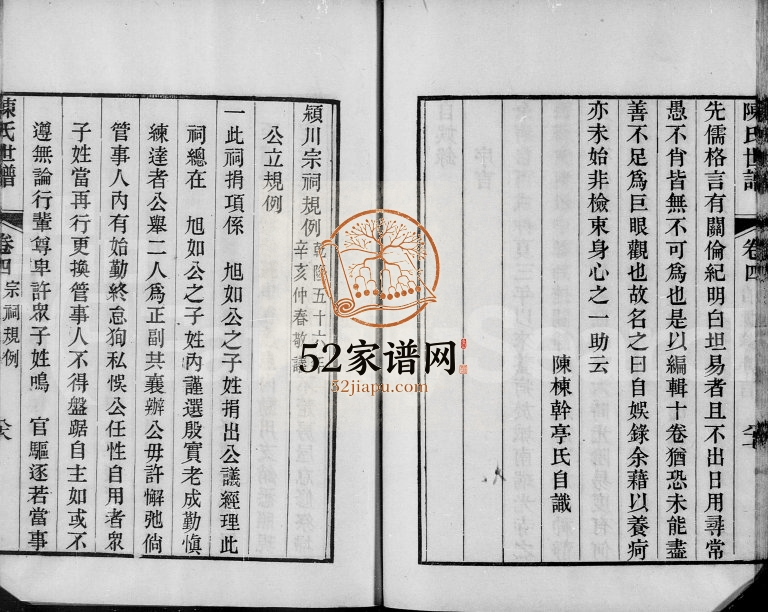 陳氏世譜
卷四
先儒格言有關倫紀明白坦易者且不出日用尋常
愚不肖皆無不可為也是以編輯十卷猶恐未能盡
善不足為巨眼觀也故名之曰自娛錄余藉以養疴
亦未始非檢束身心之一助云
陳棟幹亭氏自識
潁川宗祠規例
乾隆五十
辛亥仲春敬
公立規例
一此祠捐項係 旭如公之子姓捐出公議經理此
祠總在 旭如公之子姓內謹選殷實老成勤慎
練達者公舉二人為正副共襄辦公毋許懈弛倘
管事人內有始勤終怠狥私悞公任性自用者眾
子姓當再行更換管事人不得盤踞自主如或不
遵無論行輩尊卑許眾子姓鳴 官驅逐若當事
陳氏世譜
卷四
宗祠規例
52家谱网
52jiapu.com